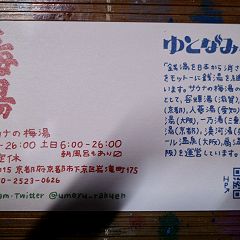 梅湯
サウナの梅湯
-26:00 土日 6:00-26:00
朝風呂もあり
定休
015 京都府京都市下京区岩滝町175
0-2523-0626
Twitter @umeyu_rakuen
ゆとなみ
「銭湯を日本から消さ
をモットーに銭湯を継
います。サウナの梅湯の
として、容輝湯(滋賀)
(京都)、人蔘湯(愛知)
湯(大阪)、一乃湯(三重
湯(京都)、湊河湯(
ール温泉(大阪)、
を運営しています。